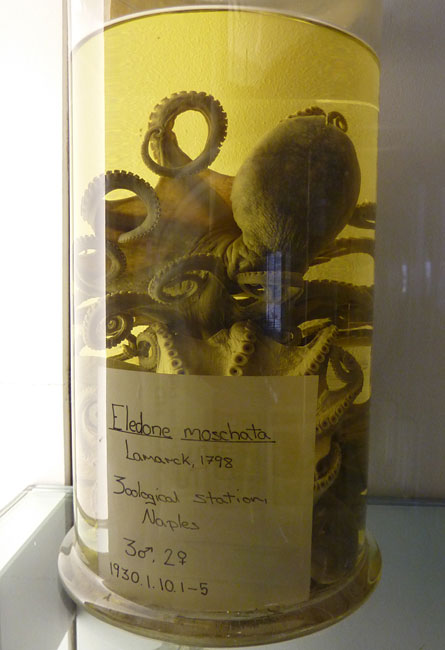 Eledone moschata
Lamarck, 1798
Zoological station,
Naples
3♂, 2♀
1930.1.10.1-5